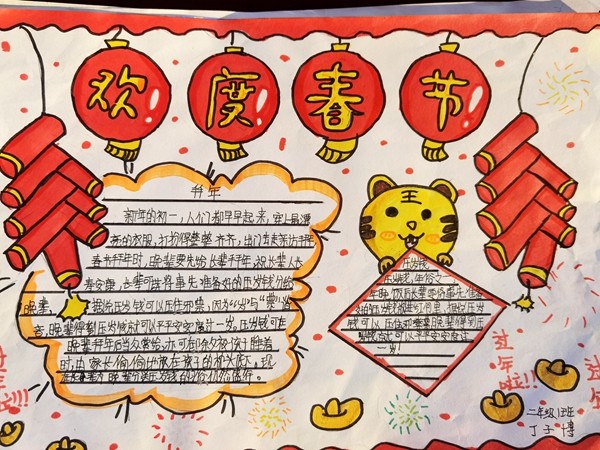 欢度春节
拜年
新年的初一,人们都早早起来,穿上最漂
亮的衣服,打扮得整整齐齐,出门去走亲访友
春节拜年时,晚辈要先给长辈拜年,祝长辈人长
寿安康,长辈可将事先准备好的压岁钱分给
晚辈,据说压岁钱可以压住邪祟,因为"岁"与"祟"谐
音,晚辈得到压岁钱就可以平平安安度过一岁。压岁钱可在
晚辈拜年后当众赏给,亦可在除夕夜孩子睡着
时,由家长偷偷地放在孩子的枕头底下,现
压岁钱
压岁钱,年俗之
年晚饭后长辈要将事先准备
好的压岁钱
钱可以压住邪祟晚辈得到压
岁钱就可以平平安安度过
一岁!
过年啦!!!
过年啦!!!
二年级1班
丁子博